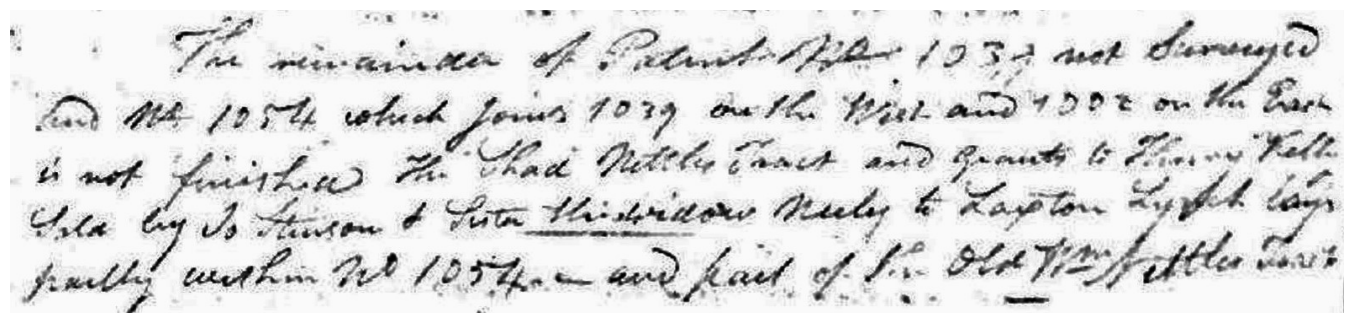 The remainder of Patent No 1039 not Surveyed
and No 1054 which Joins 1039 on the West and 1002 on the East
is not finished The Shad Nettles Tract and grants to Thomas
Sold by Jo Stinson & Sister the widow Neely to Laxton Lynch lays
partly within No 1054 and part of the Old Wm Nettles Tract